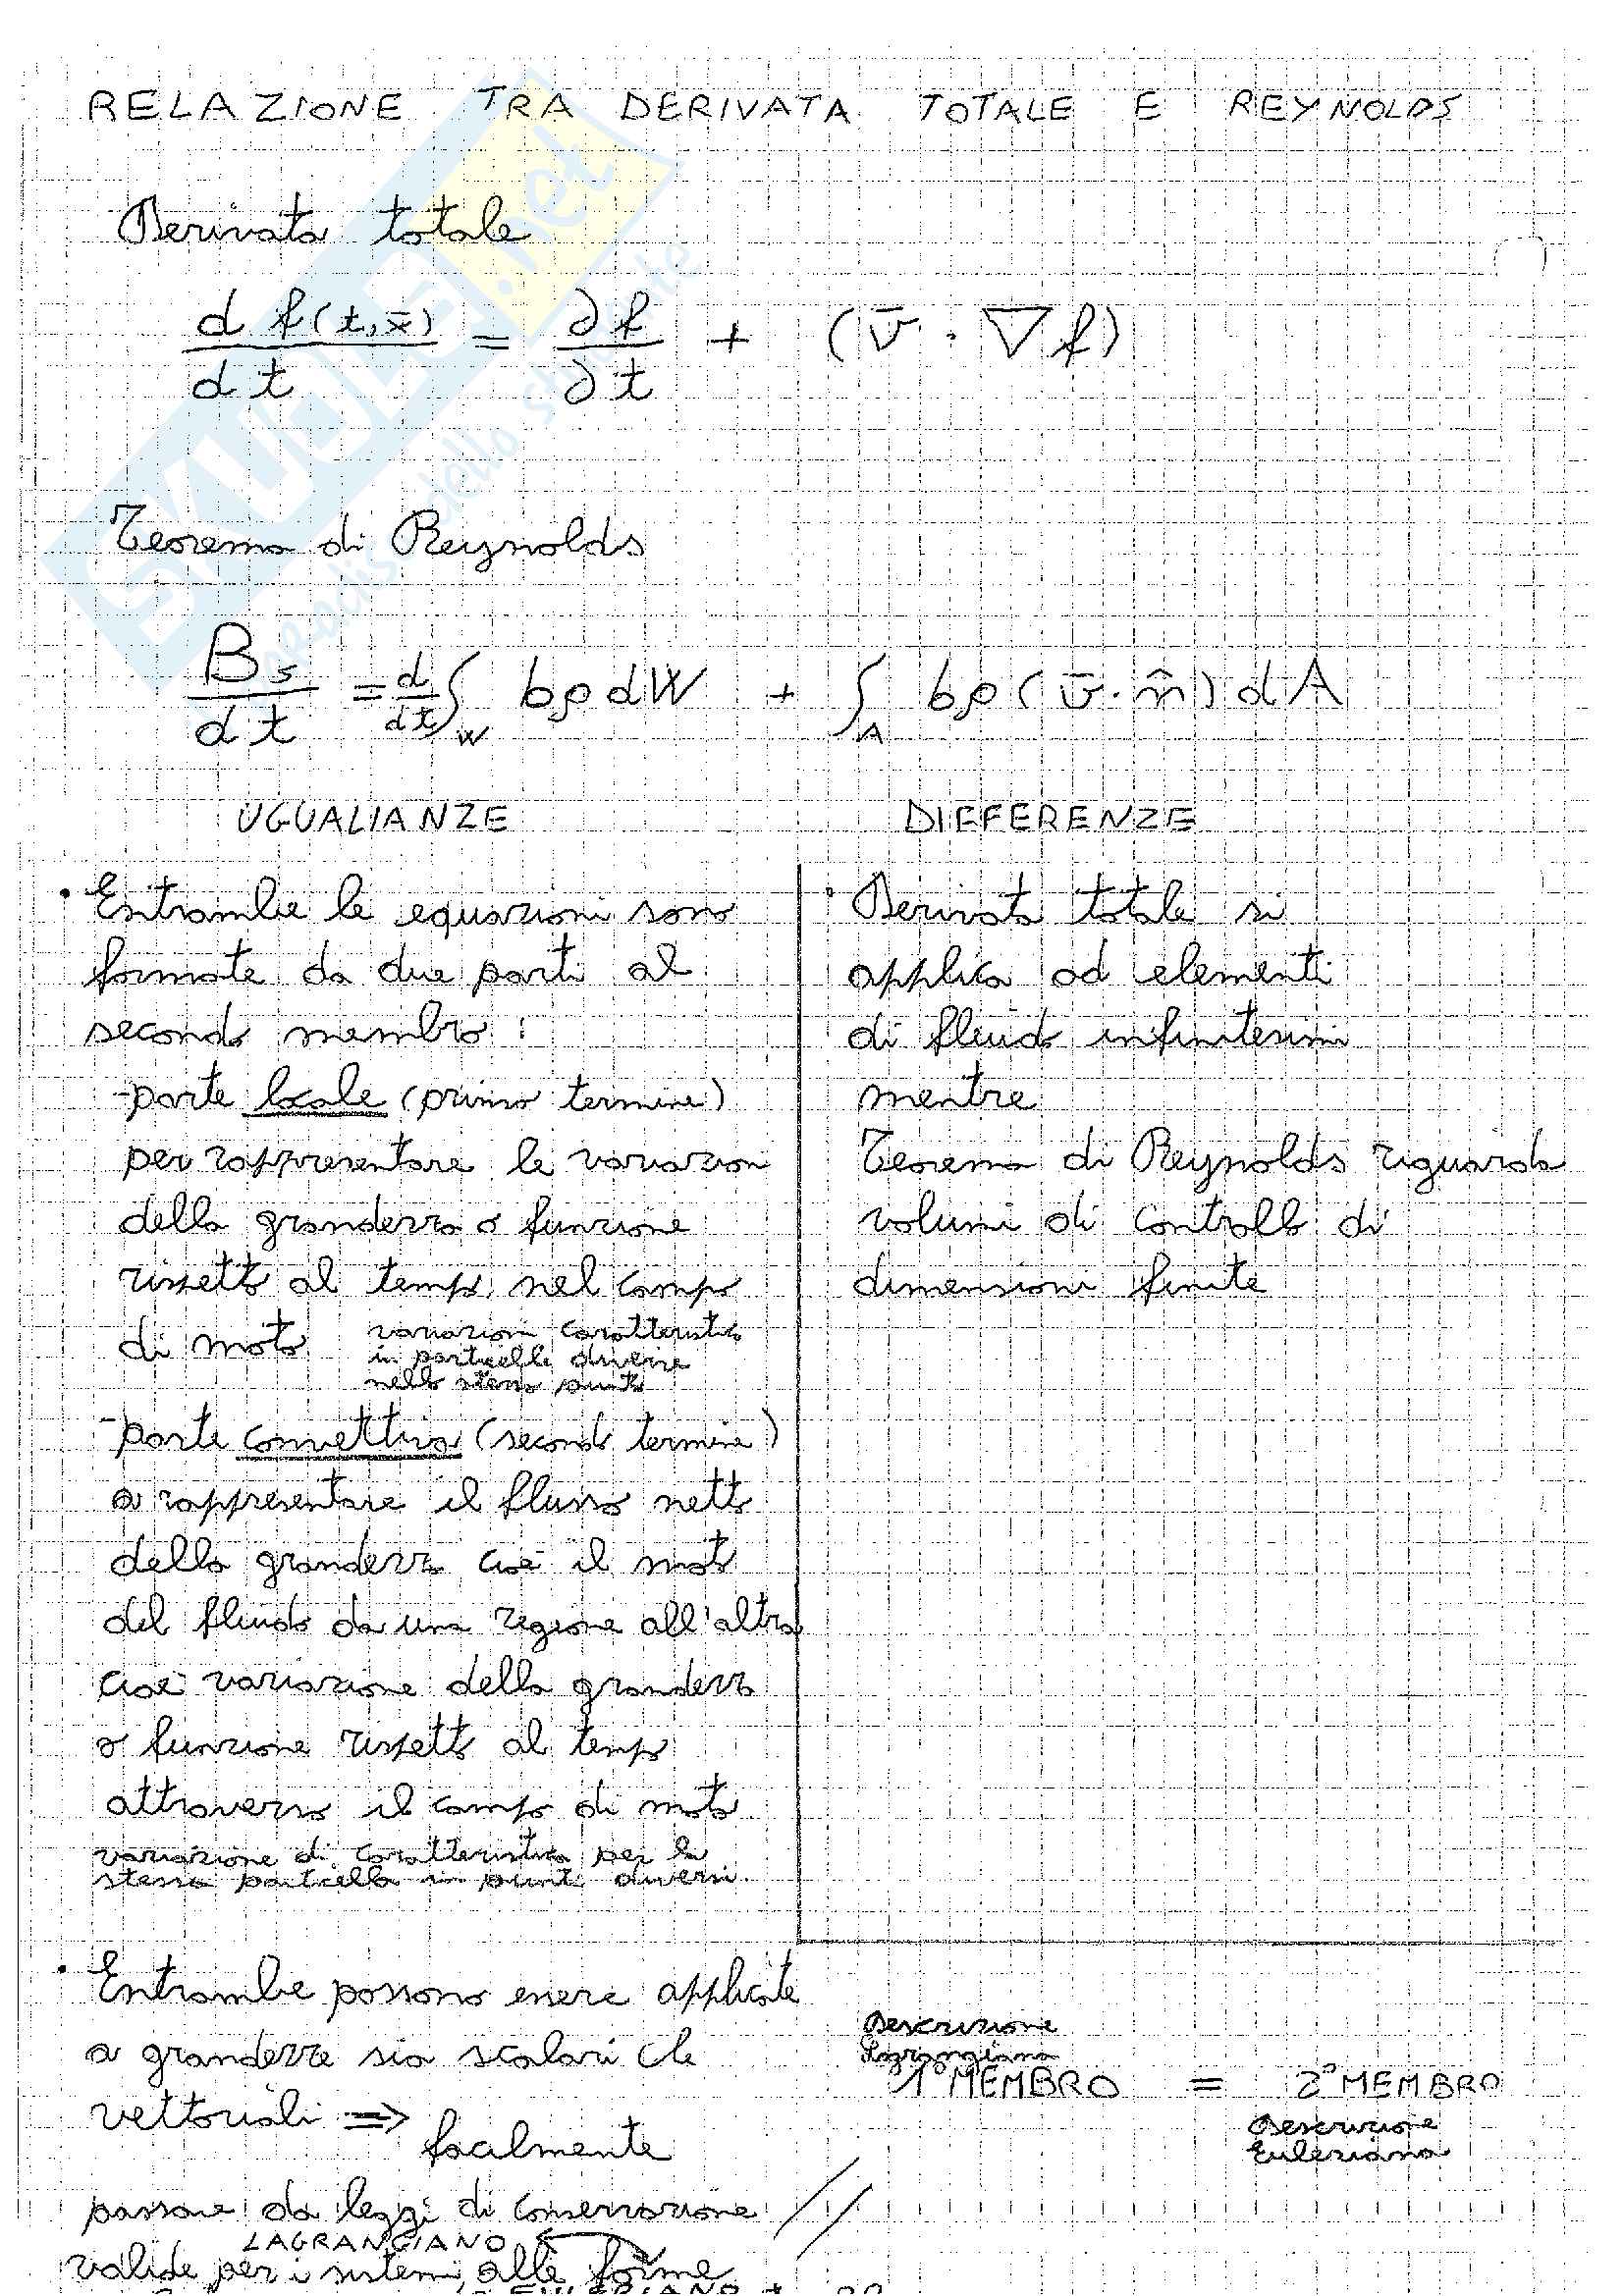 RELAZIONE TRA DERIVATA TOTALE E REYNOLDS
Derivata totale
d f(t,x̄) / dt = ∂f / ∂t + (v̄ · ∇f)
Teorema di Reynolds
Bs / dt = d/dt ∫W bρ dW + ∫A bρ (v̄ · n̂) dA
UGUALIANZE
• Entrambe le equazioni sono
formate da due parti al
secondo membro:
- parte locale (primo termine)
per rappresentare le variazioni
della grandezza o funzione
rispetto al tempo nel campo
di moto
variazioni caratteristica
in particelle diverse
nello stesso punto
- parte convettiva (secondo termine)
a rappresentare il flusso netto
della grandezza cioè il moto
del fluido da una regione all'altra
cioè variazione della grandezza
o funzione rispetto al tempo
attraverso il campo di moto
variazione di caratteristica per la
stessa particella in punti diversi.
• Entrambe possono essere applicate
a grandezze sia scalari che
vettoriali ⇒ facilmente
passare da leggi di conservazione
LAGRANGIANO
valide per i sistemi alle forme
EULERIANO
DIFFERENZE
• Derivata totale si
applica ad elementi
di fluido infinitesimi
mentre
Teorema di Reynolds riguarda
volumi di controllo di
dimensioni finite
Descrizione
Lagrangiana
1° MEMBRO = 2° MEMBRO
Descrizione
Euleriana
SKUOLA.net